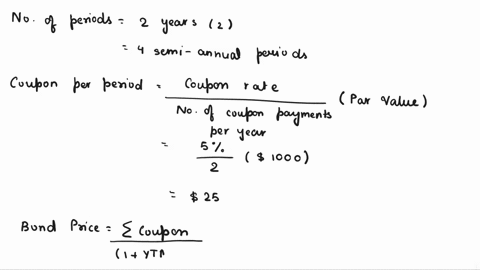 No. of periods = 2 years (2)
= 4 semi-annual periods
Coupon per period = Coupon rate / No. of coupon payments per year (Par Value)
= 5% / 2 ($1000)
= $25
Bond Price = Σ Coupon / (1+YTM